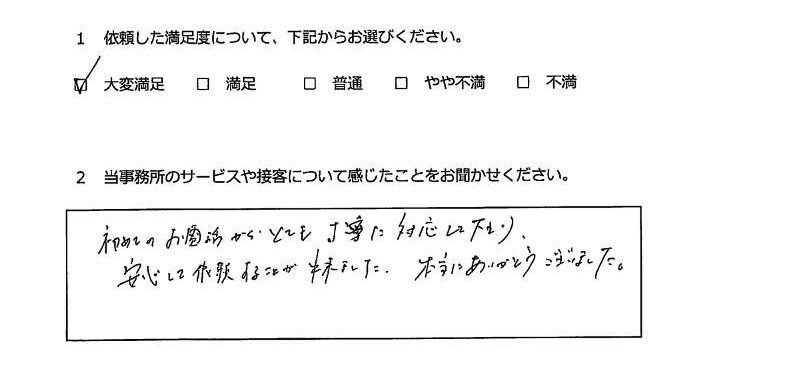 1 依頼した満足度について、下記からお選びください。
☑ 大変満足 □ 満足 □ 普通 □ やや不満 □ 不満
2 当事務所のサービスや接客について感じたことをお聞かせください。
初めてのお電話から、とても丁寧に対応して下さり、
安心して依頼することが出来ました。本当にありがとうございました。